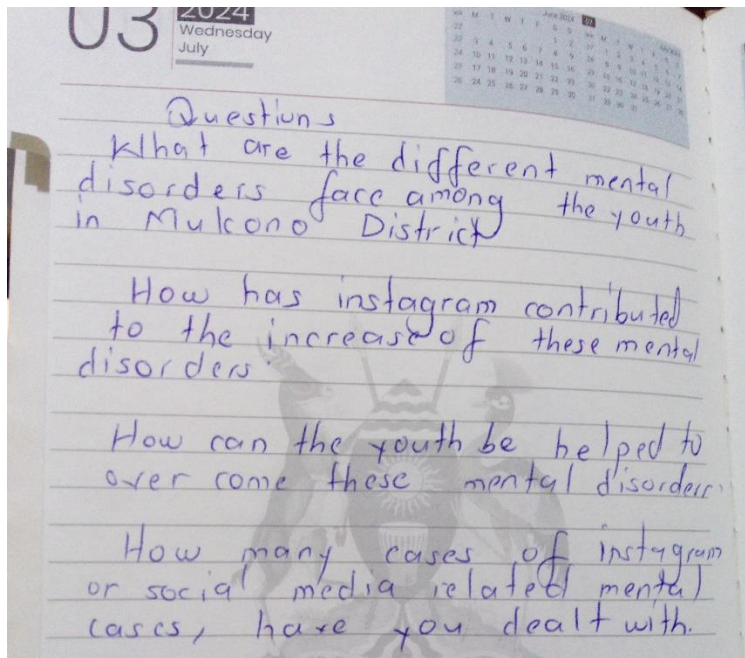 03
2024
Wednesday
July
June 2024
Questions
What are the different mental
disorders face among the youth
in Mukono District
How has instagram contributed
to the increase of these mental
disorders.
How can the youth be helped to
over come these mental disorders.
How many cases of instagram
or social media related mental
cases, have you dealt with.